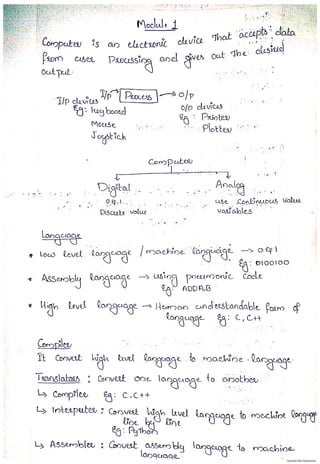 Module 1
Computer is an electronic device That accepts data
from user Processing and gives out the desired
output.
I/P → Process → O/P
I/P devices
Eg: keyboard
Mouse
Joystick
O/P devices
Eg: Printer
Plotter
Computer
Digital
0 & 1
Discrete value
Analog
use Continuous value
variables
Language
* Low level language / machine language → 0 & 1
Eg: 0100100
* Assembly language → using pneumonic code
Eg ADDA,B
* High level language → Human understandable form of
language Eg: C, C++
Compiler
It Convert high level language to machine language.
Translators : Convert one language to another
↳ Compiler Eg: C, C++
↳ Interputer : Convert high level language to machine language
line by line
Eg: Python
↳ Assembler : Convert assembly language to machine
language.